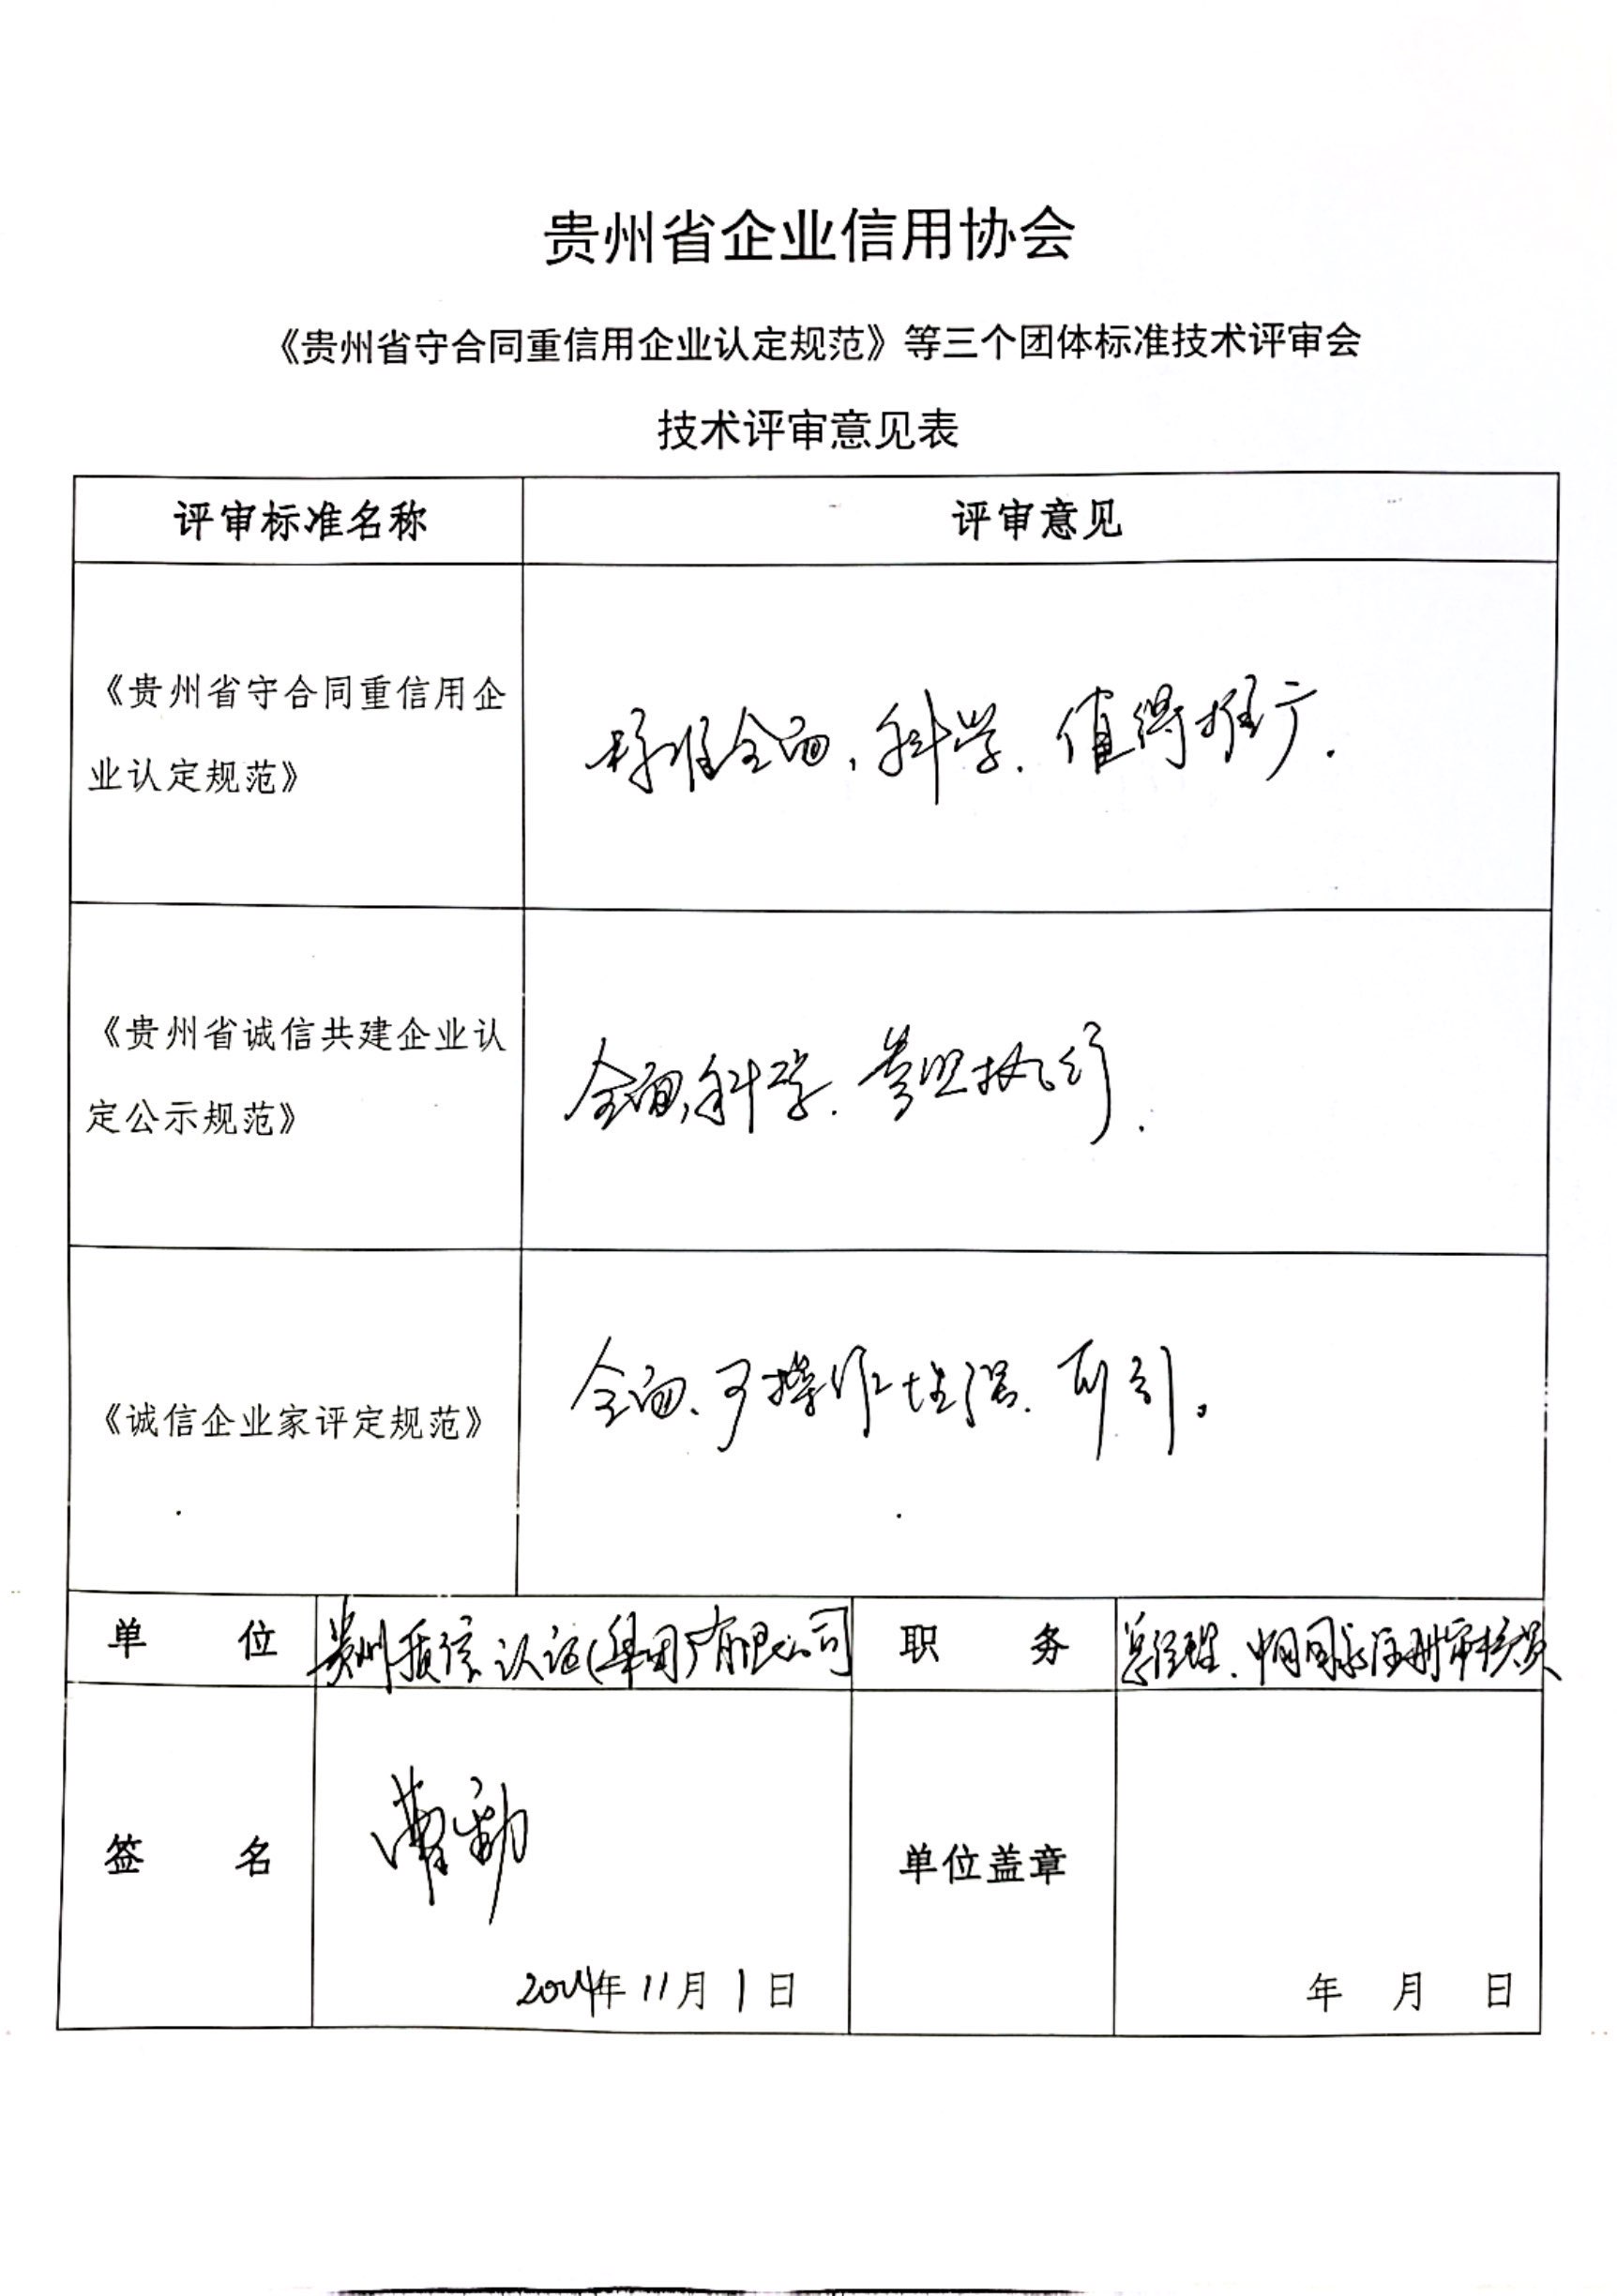 贵州省企业信用协会
《贵州省守合同重信用企业认定规范》等三个团体标准技术评审会
技术评审意见表
评审标准名称 评审意见
《贵州省守合同重信用企
业认定规范》
标准全面，科学．值得推广．
《贵州省诚信共建企业认
定公示规范》
全面，科学．参照执行．
《诚信企业家评定规范》
全面、可操作性强．可行。
单 位 贵州质信认证(集团)有限公司 职 务 总经理、中国国家注册审核员
签 名 单位盖章
2024年11月1日 年 月 日